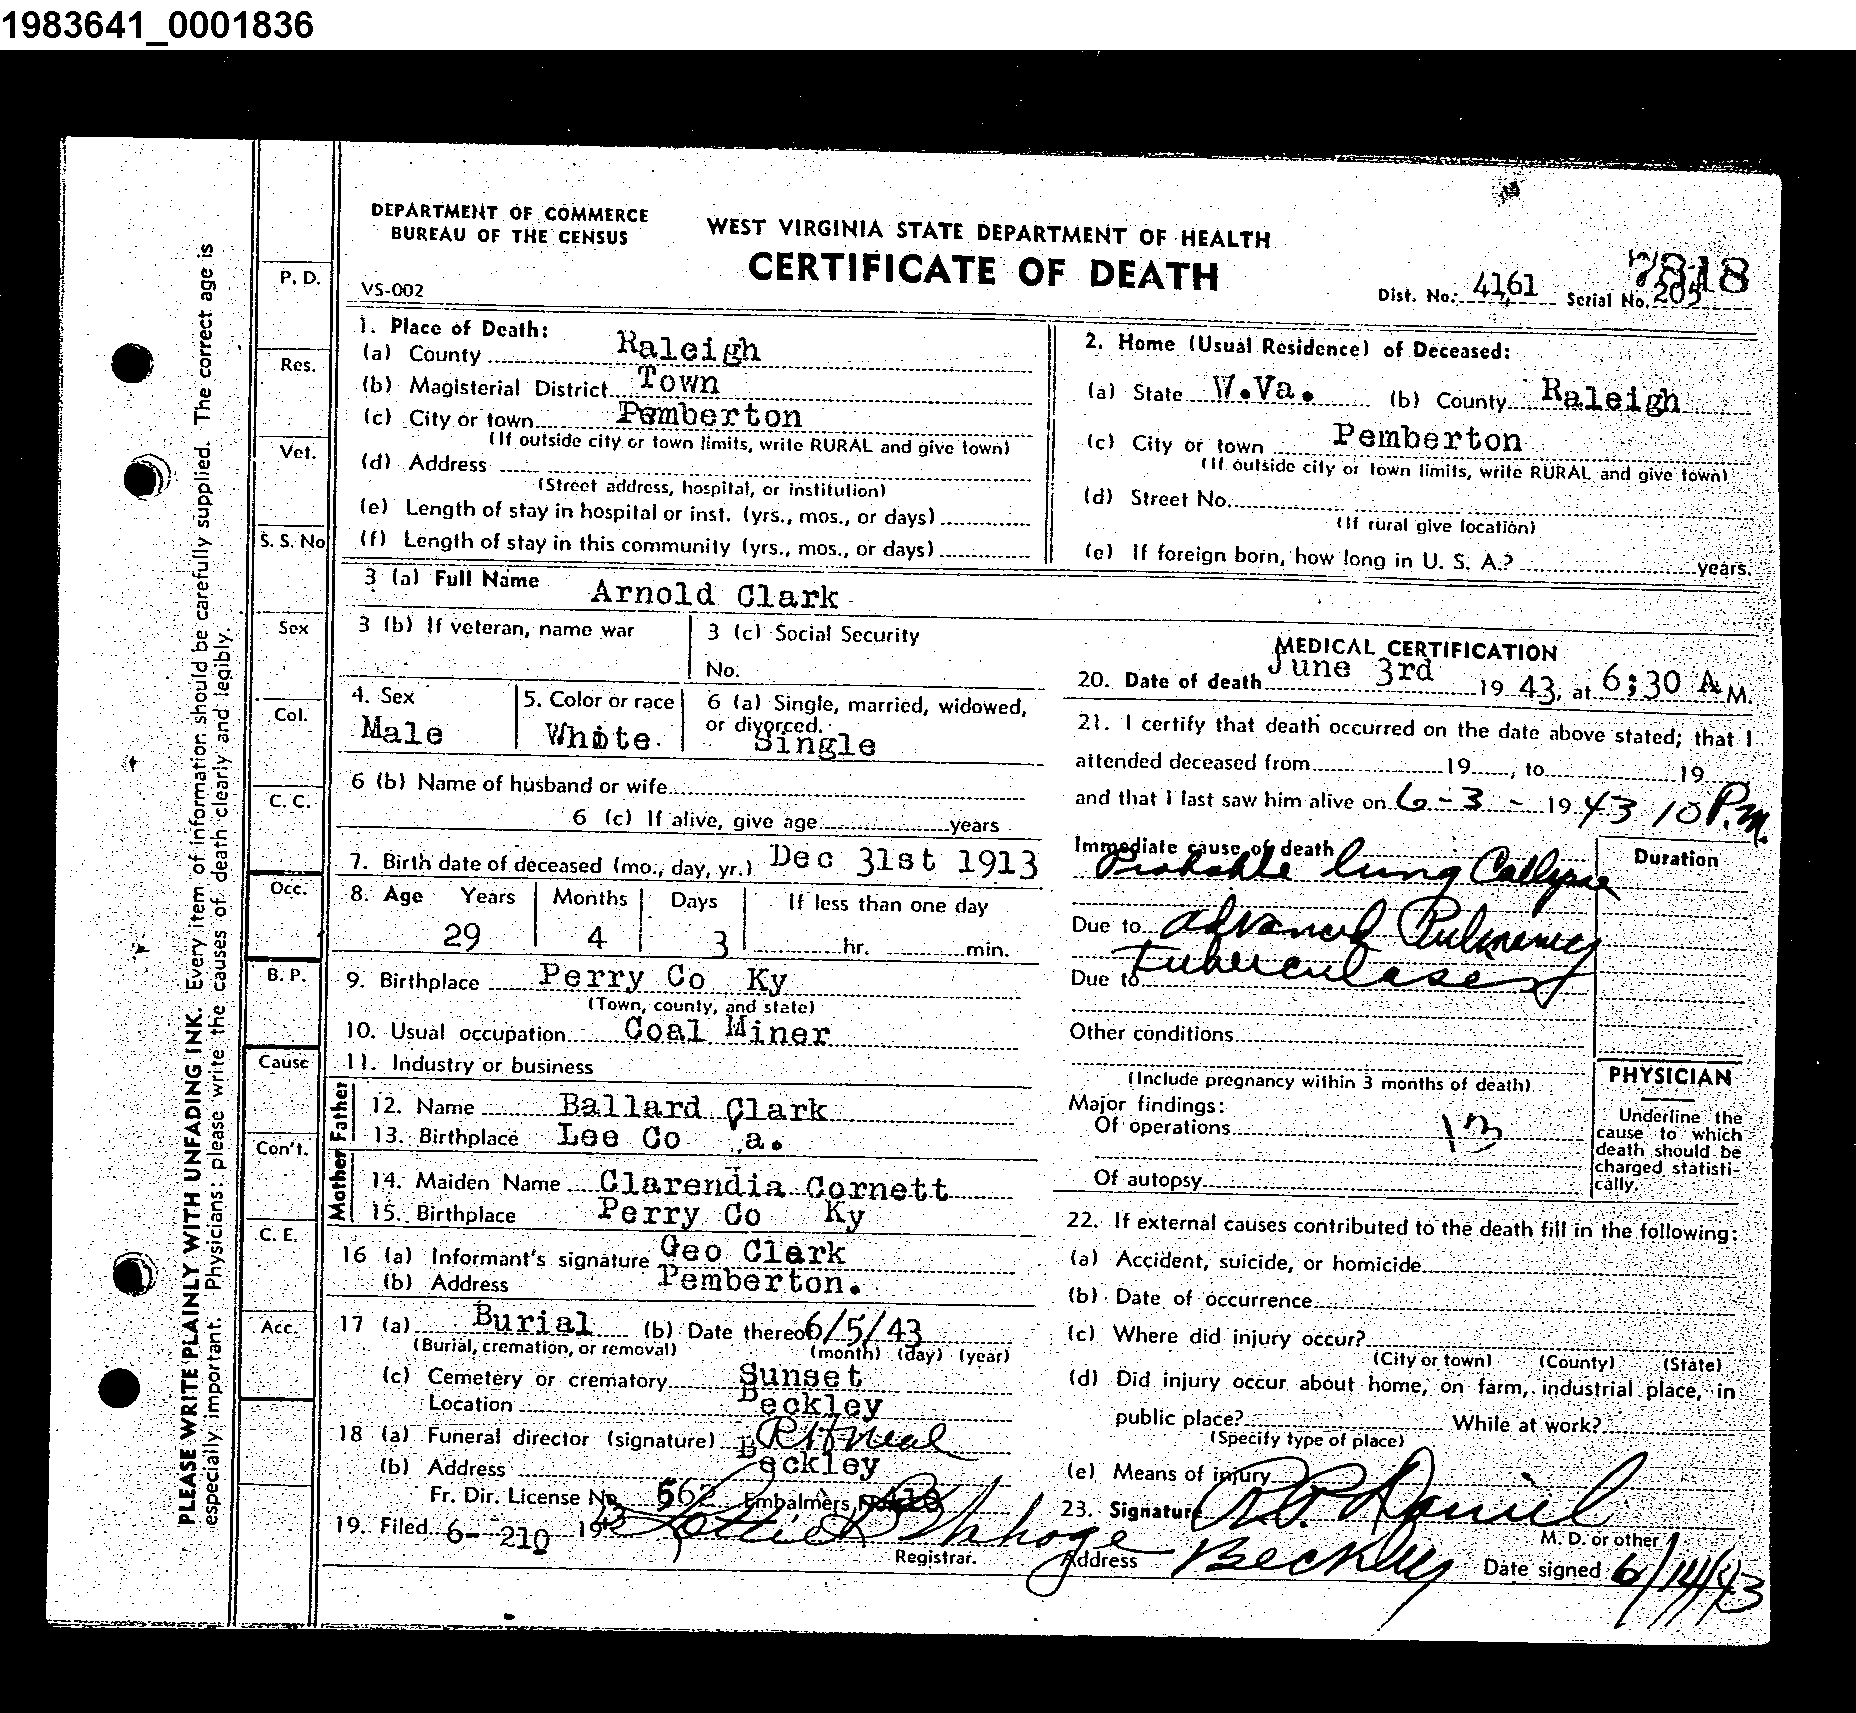 1983641_0001836
PLEASE WRITE PLAINLY WITH UNFADING INK. Every item of information should be carefully supplied. The correct age is
especially important. Physicians: please write the causes of death clearly and legibly.
P. D.
Res.
Vet.
S. S. No
Sex
Col.
C. C.
Occ.
B. P.
Cause
Con't.
C. E.
Acc.
DEPARTMENT OF COMMERCE
BUREAU OF THE CENSUS
VS-002
WEST VIRGINIA STATE DEPARTMENT OF HEALTH
CERTIFICATE OF DEATH
7818
Dist. No. 4161 Serial No. 205
1. Place of Death:
(a) County Raleigh
(b) Magisterial District Town
(c) City or town Pemberton
(If outside city or town limits, write RURAL and give town)
(d) Address
(Street address, hospital, or institution)
(e) Length of stay in hospital or inst. (yrs., mos., or days)
(f) Length of stay in this community (yrs., mos., or days)
2. Home (Usual Residence) of Deceased:
(a) State W.Va. (b) County Raleigh
(c) City or town Pemberton
(If outside city or town limits, write RURAL and give town)
(d) Street No.
(If rural give location)
(e) If foreign born, how long in U. S. A.? years
3 (a) Full Name Arnold Clark
3 (b) If veteran, name war
3 (c) Social Security
No.
4. Sex
Male
5. Color or race
White
6 (a) Single, married, widowed,
or divorced.
Single
6 (b) Name of husband or wife
6 (c) If alive, give age years
7. Birth date of deceased (mo., day, yr.) Dec 31st 1913
8. Age Years Months Days If less than one day
29 4 3 hr. min.
9. Birthplace Perry Co Ky
(Town, county, and state)
10. Usual occupation Coal Miner
11. Industry or business
Father
12. Name Ballard Clark
13. Birthplace Lee Co a.
Mother
14. Maiden Name Clarendia Cornett
15. Birthplace Perry Co Ky
16 (a) Informant's signature Geo Clark
(b) Address Pemberton.
17 (a) Burial (b) Date thereof 6/5/43
(Burial, cremation, or removal) (month) (day) (year)
(c) Cemetery or crematory Sunset
Location Beckley
18 (a) Funeral director (signature)
(b) Address Beckley
Fr. Dir. License No. 562 Embalmers
19. Filed 6- 210 1943 Lottie
Registrar.
MEDICAL CERTIFICATION
20. Date of death June 3rd 19 43, at 6:30 A M.
21. I certify that death occurred on the date above stated; that I
attended deceased from 19 , to 19
and that I last saw him alive on 6-3- 1943 10 P.m.
Immediate cause of death
Probable lung Collapse
Due to Advanced Pulmonary
Due to Tuberculoses
Duration
Other conditions
(Include pregnancy within 3 months of death)
Major findings:
Of operations
13
Of autopsy
PHYSICIAN
Underline the
cause to which
death should be
charged statisti-
cally.
22. If external causes contributed to the death fill in the following:
(a) Accident, suicide, or homicide
(b) Date of occurrence
(c) Where did injury occur?
(City or town) (County) (State)
(d) Did injury occur about home, on farm, industrial place, in
public place? While at work?
(Specify type of place)
(e) Means of injury
23. Signature Daniel
M. D. or other
Address Beckley Date signed 6/14/43